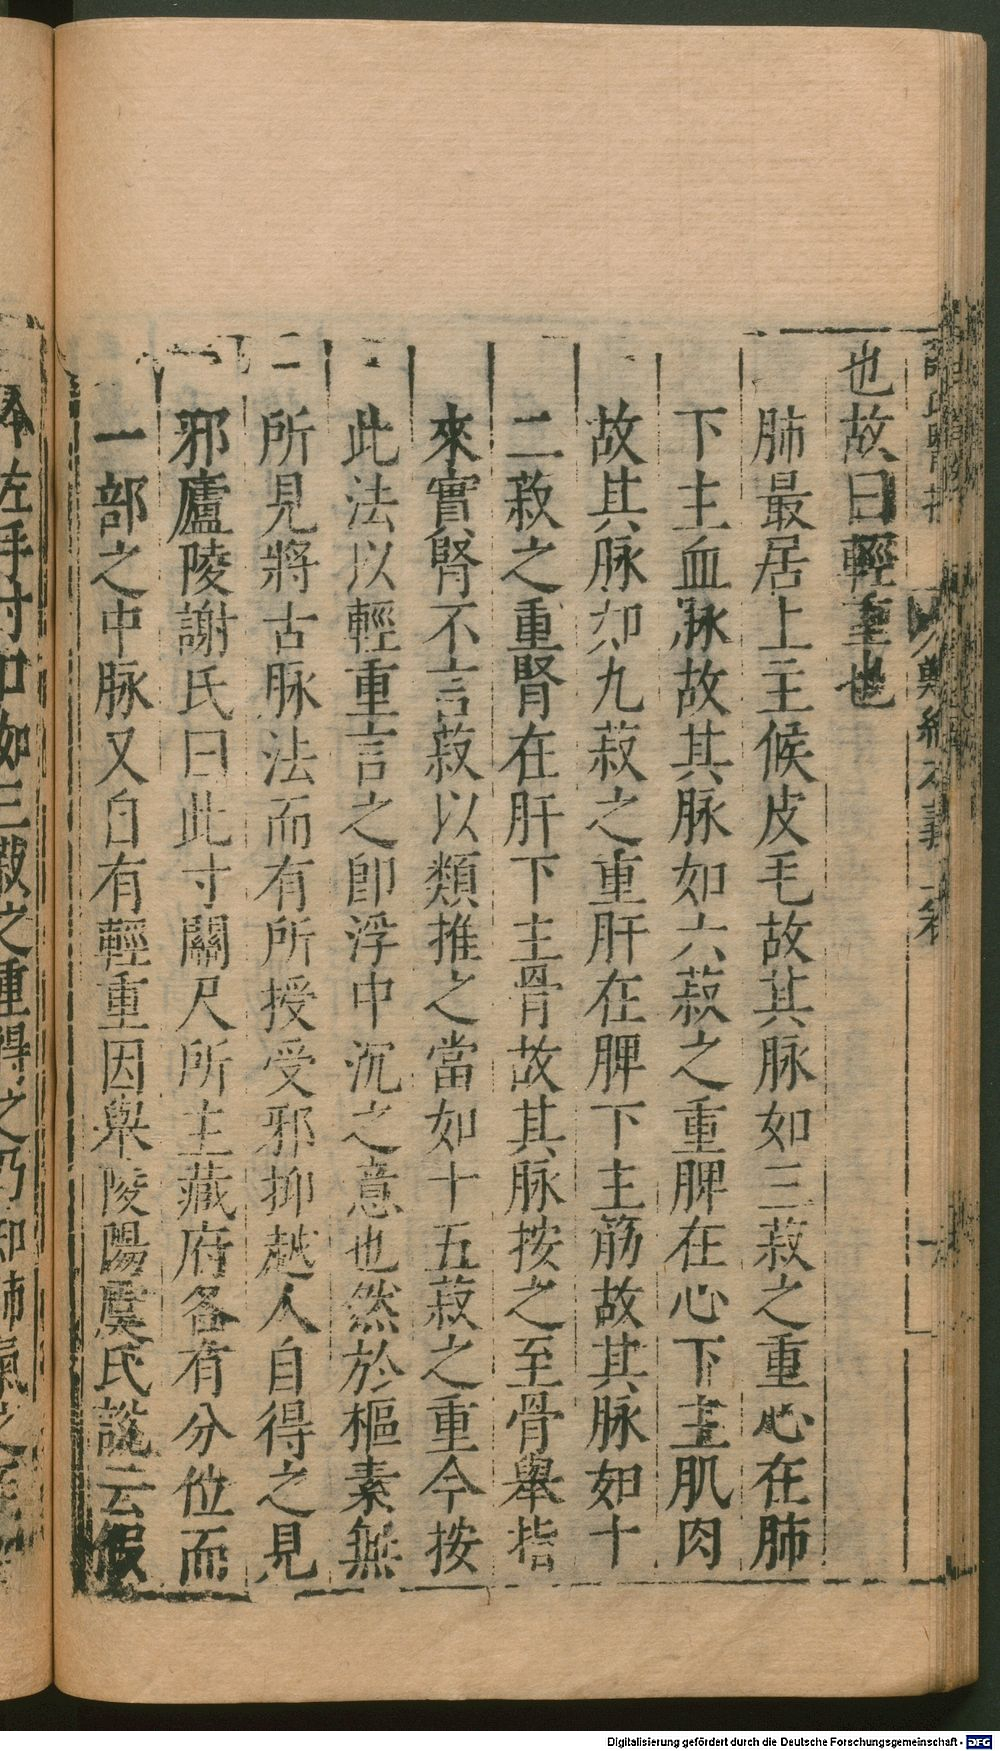 難經本義 卷
也故曰輕重也
肺最居上主候皮毛故其脉如三菽之重心在肺
下主血脉故其脉如六菽之重脾在心下主肌肉
故其脉如九菽之重肝在脾下主筋故其脉如十
二菽之重腎在肝下主骨故其脉按之至骨舉指
來實腎不言菽以類推之當如十五菽之重今按
此法以輕重言之即浮中沉之意也然於樞素無
所見將古脉法而有所授受邪抑越人自得之見
邪廬陵謝氏曰此寸關尺所主藏府各有分位而
一部之中脉又自有輕重因舉陵陽虞氏說云假
令左手寸口如三菽之重得之乃知肺氣之
Digitalisierung gefördert durch die Deutsche Forschungsgemeinschaft - DFG